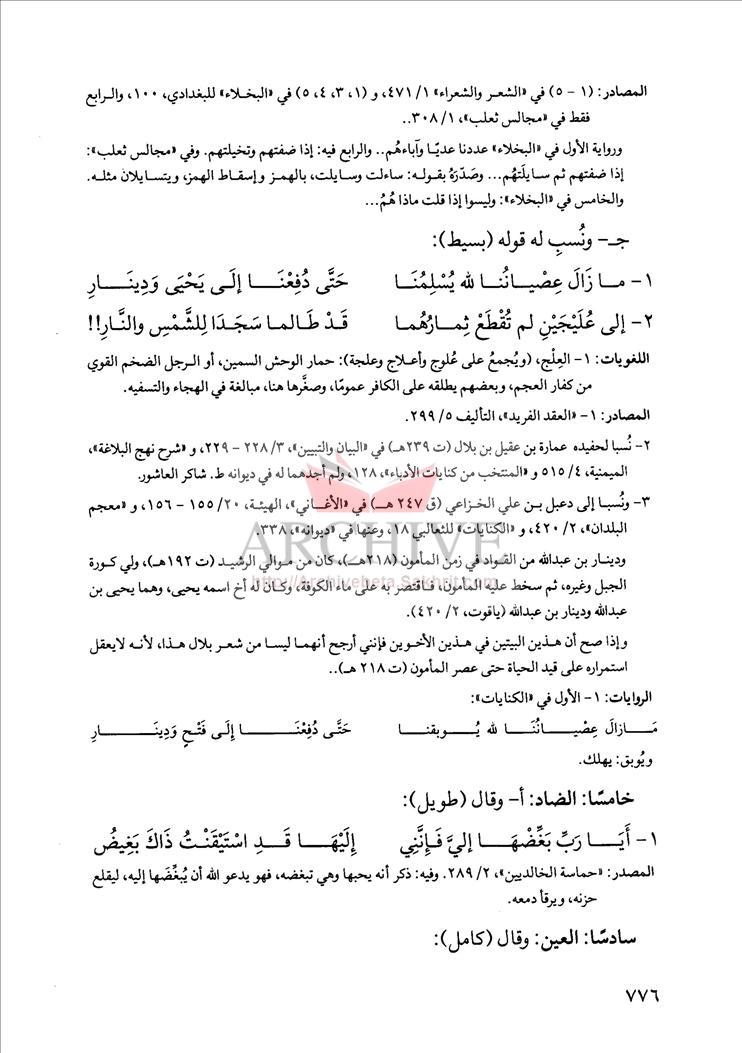 المصادر: (١ - ٥) في «الشعر والشعراء» ١/ ٤٧١، و (١، ٣، ٤، ٥) في «البخلاء» للبغدادي، ١٠٠، والرابع
فقط في «مجالس ثعلب»، ١/ ٣٠٨..
ورواية الأول في «البخلاء» عددنا عديًا وآباءهُم.. والرابع فيه: إذا ضفتهم وتخيلتهم. وفي «مجالس ثعلب»:
إذا ضفتهم ثم سايلَتهُم... وصَدّرَهُ بقوله: ساءلت وسايلت، بالهمز وإسقاط الهمز، ويتسايلان مثله.
والخامس في «البخلاء»: وليسوا إذا قلت ماذا هُمُ...
جـ- ونُسبِ له قوله (بسيط):
١- ما زَالَ عِصْيانُنا لله يُسْلِمُنَا حَتَّى دُفِعْنَا إلَى يَحْيَى وَدِينَارِ
٢- إلى عُلَيْجَيْنِ لم تُقْطَعْ ثِمارُهُما قَدْ طَالما سَجَدَا لِلشَّمْسِ والنَّارِ!!
اللغويات: ١- العِلْج، (ويُجمعُ على عُلوج وأعلاج وعلجة): حمار الوحش السمين، أو الرجل الضخم القوي
من كفار العجم، وبعضهم يطلقه على الكافر عمومًا، وصغَّرها هنا، مبالغة في الهجاء والتسفيه.
المصادر: ١- «العقد الفريد»، التأليف ٥/ ٢٩٩.
٢- نُسبا لحفيده عمارة بن عقيل بن بلال (ت ٢٣٩هـ) في «البيان والتبيين»، ٣/ ٢٢٨ - ٢٢٩، و «شرح نهج البلاغة»،
الميمنية، ٤/ ٥١٥ و «المنتخب من كنايات الأدباء»، ١٢٨، ولم أجدهما له في ديوانه ط. شاكر العاشور.
٣- ونُسبا إلى دعبل بن علي الخزاعي (ق ٢٤٧ هـ) في «الأغاني»، الهيئة، ٢٠/ ١٥٥ - ١٥٦، و «معجم
البلدان»، ٢/ ٤٢٠، و «الكنايات» للثعالبي ١٨، وعنها في «ديوانه»، ٣٣٨.
ARCHIVE
ودينار بن عبدالله من القواد في زمن المأمون (٢١٨هـ)، كان من موالي الرشيد (ت ١٩٢هـ)، ولي كورة
http://Archivebeta.Sakhrit.com
الجبل وغيره، ثم سخط عليه المأمون، فاقتصر به على ماء الكوفة، وكان له أخ اسمه يحيى، وهما يحيى بن
عبدالله ودينار بن عبدالله (ياقوت، ٢/ ٤٢٠).
وإذا صح أن هذين البيتين في هذين الأخوين فإنني أرجح أنهما ليسا من شعر بلال هذا، لأنه لايعقل
استمراره على قيد الحياة حتى عصر المأمون (ت ٢١٨ هـ)..
الروايات: ١- الأول في «الكنايات»:
مَازالَ عِصْيانُنَا لله يُوبقنا حَتَّى دُفِعْنَا إلَى فَتْحٍ وَدِينَارِ
ويُوبق: يهلك.
خامسًا: الضاد: أ- وقال (طويل):
١- أَيَا رَبِّ بَغِّضْهَا إليَّ فَإنَّنِي إِلَيْهَا قَدِ اسْتَيْقَنْتُ ذَاكَ بَغِيضُ
المصدر: «حماسة الخالديين»، ٢/ ٢٨٩. وفيه: ذكر أنه يحبها وهي تبغضه، فهو يدعو الله أن يُبغِّضَها إليه، ليقلع
حزنه، ويرقأ دمعه.
سادسًا: العين: وقال (كامل):
٧٧٦